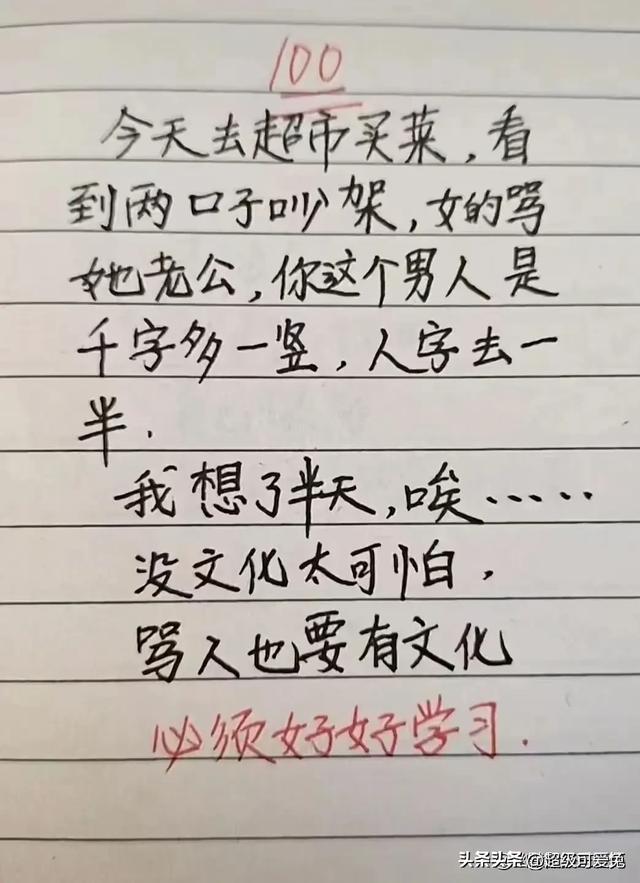 100
今天去超市买菜,看
到两口子吵架,女的骂
她老公,你这个男人是
千字多一竖,人字去一
半.
我想了半天,唉……
没文化太可怕.
骂人也要有文化
必须好好学习.
头条头条 @超级可爱兔